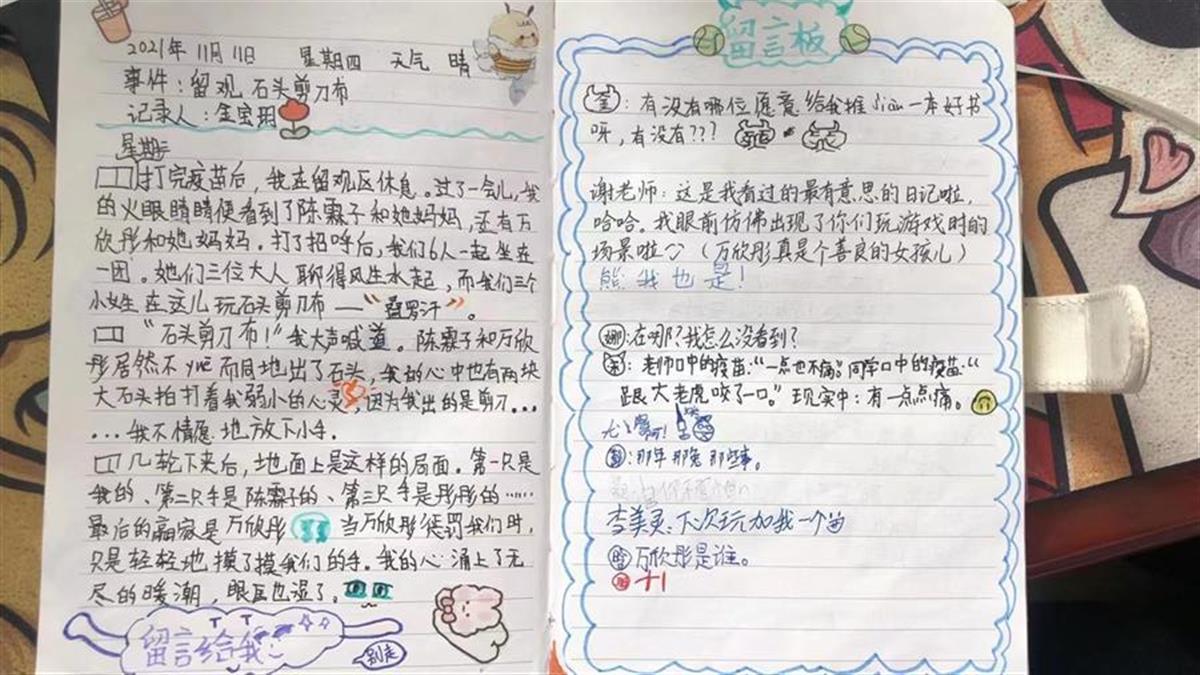 2021年 11月 11日 星期四 天气 晴
事件：留观 石头剪刀布
记录人：金宝玥
星期三
打完疫苗后，我在留观区休息。过了一会儿，我
的火眼睛睛便看到了陈霖子和她妈妈，还有万
欣彤和她妈妈。打了招呼后，我们6人一起坐在
一团。她们三位大人聊得风生水起，而我们三个
小女生在这儿玩石头剪刀布——“叠罗汗”。
“石头剪刀布！”我大声喊道。陈霖子和万欣
彤居然不yuē而同地出了石头，我的心中也有两块
大石头拍打着我弱小的心灵，因为我出的是剪刀……
……我不情愿地放下小手。
几轮下来后，地面上是这样的局面。第一只是
我的、第二只手是陈霖子的、第三只手是彤彤的……
最后的赢家是万欣彤 当万欣彤惩罚我们时，
只是轻轻地摸了摸我们的手。我的心涌上了无
尽的暖潮，眼眶也湿了。
留言给我
别走
留言板
：有没有哪位愿意给我推jiàn一本好书
呀，有没有???
谢老师：这是我看过的最有意思的日记啦，
哈哈。我眼前仿佛出现了你们玩游戏时的
场景啦（万欣彤真是个善良的女孩儿）
熊 我也是！
娜：在哪？我怎么没看到？
：老师口中的疫苗：“一点也不痛。”同学口中的疫苗：“
跟大老虎咬了一口。”现实中：有一点点痛。
：那年那兔那些事。
李美灵：下次玩加我一个
万欣彤是谁。
+1